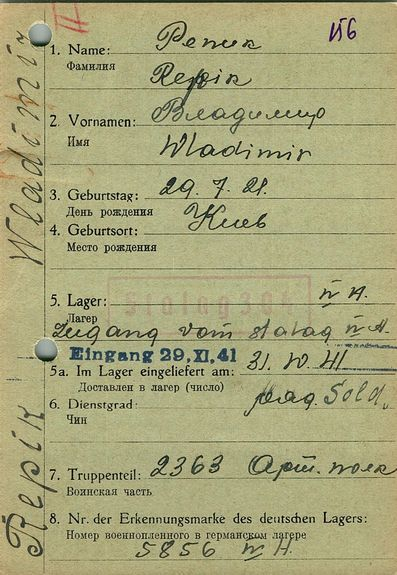 II
156
1. Name: Репик
Фамилия
Repik
2. Vornamen: Владимир
Имя
Wladimir
3. Geburtstag: 29. 7. 21.
День рождения
4. Geburtsort: Киев
Место рождения
Stalag 304
5. Lager: IV H.
Лагер
Zugang vom Stalag IV H.
Eingang 29. XI. 41
5a. Im Lager eingeliefert am: 31. 41
Доставлен в лагер (число)
6. Dienstgrad: ряд. Sold.
Чин
7. Truppenteil: 2363 Арт. полк
Воинская часть
8. Nr. der Erkennungsmarke des deutschen Lagers:
Номер военнопленного в германском лагере
5856 IV H.
Repik Wladimir